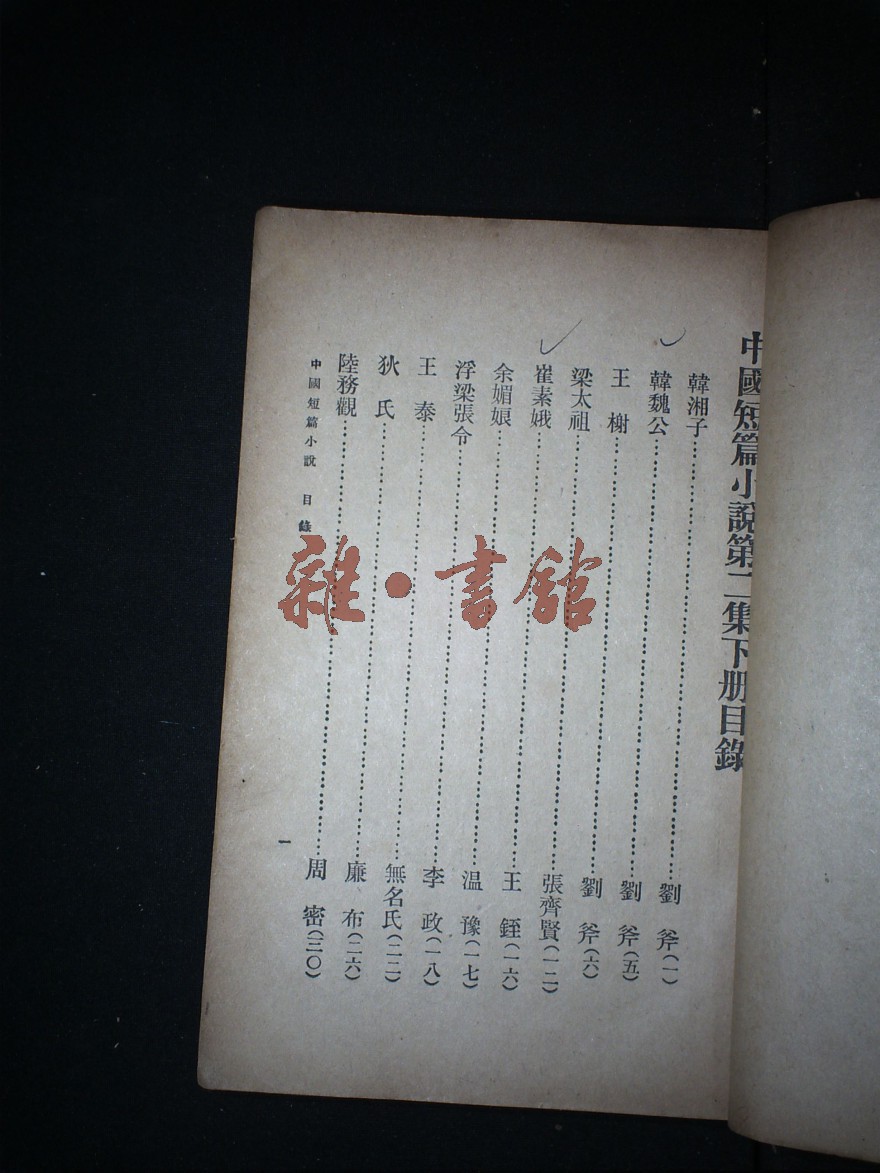 中國短篇小說第二集下册目錄
韓湘子……劉 斧(一)
韓魏公……劉 斧(五)
王 榭……劉 斧(六)
梁太祖……張齊賢(一二)
崔素娥……王 銍(一六)
余媚娘……温 豫(一七)
浮梁張令……李 政(一八)
王 泰……無名氏(二二)
狄 氏……廉 布(二六)
陸務觀……周 密(三〇)
中國短篇小說 目錄
一
雜·書館